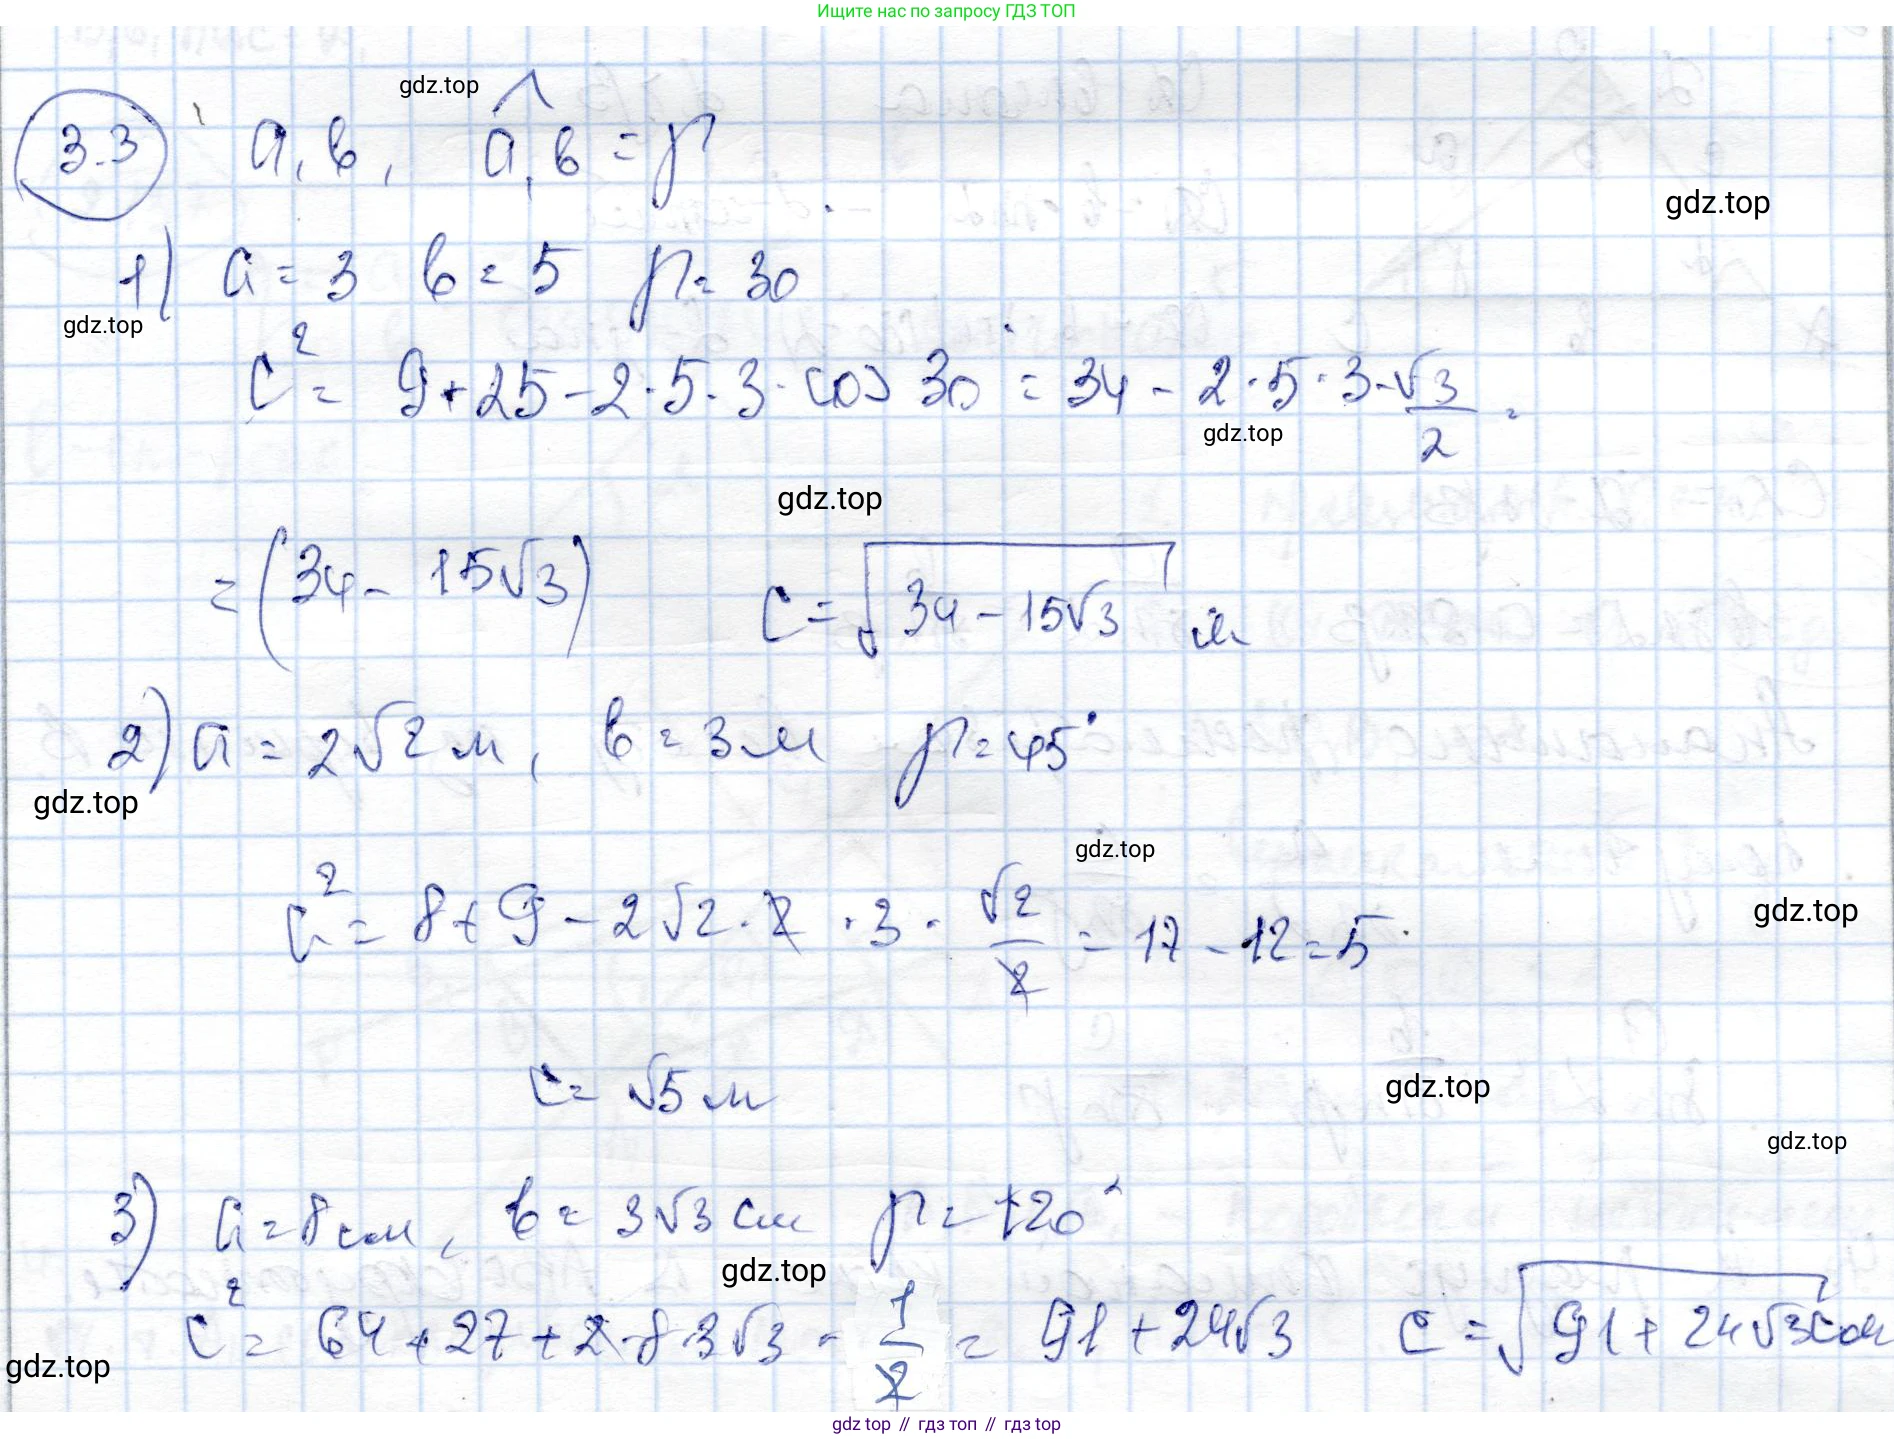 Ищите нас по запросу ГДЗ ТОП
gdz.top
3.3 a, b, a, b = γ
gdz.top
1) a = 3 b = 5 γ = 30
gdz.top
c² = 9 + 25 - 2 · 5 · 3 · cos 30° = 34 - 2 · 5 · 3 · √3/2 =
gdz.top
gdz.top
= (34 - 15√3) c = √(34 - 15√3) м
2) a = 2√2 м, b = 3 м γ = 45°
gdz.top
gdz.top
c² = 8 + 9 - 2√2 · 2 · 3 · √2/2 = 17 - 12 = 5
gdz.top
c = √5 м
gdz.top
gdz.top
3) a = 8 см, b = 3√3 см γ = 120°
gdz.top
c² = 64 + 27 + 2 · 8 · 3√3 · 1/2 = 91 + 24√3 c = √(91 + 24√3) см
gdz.top
gdz.top // гдз топ // гдз top